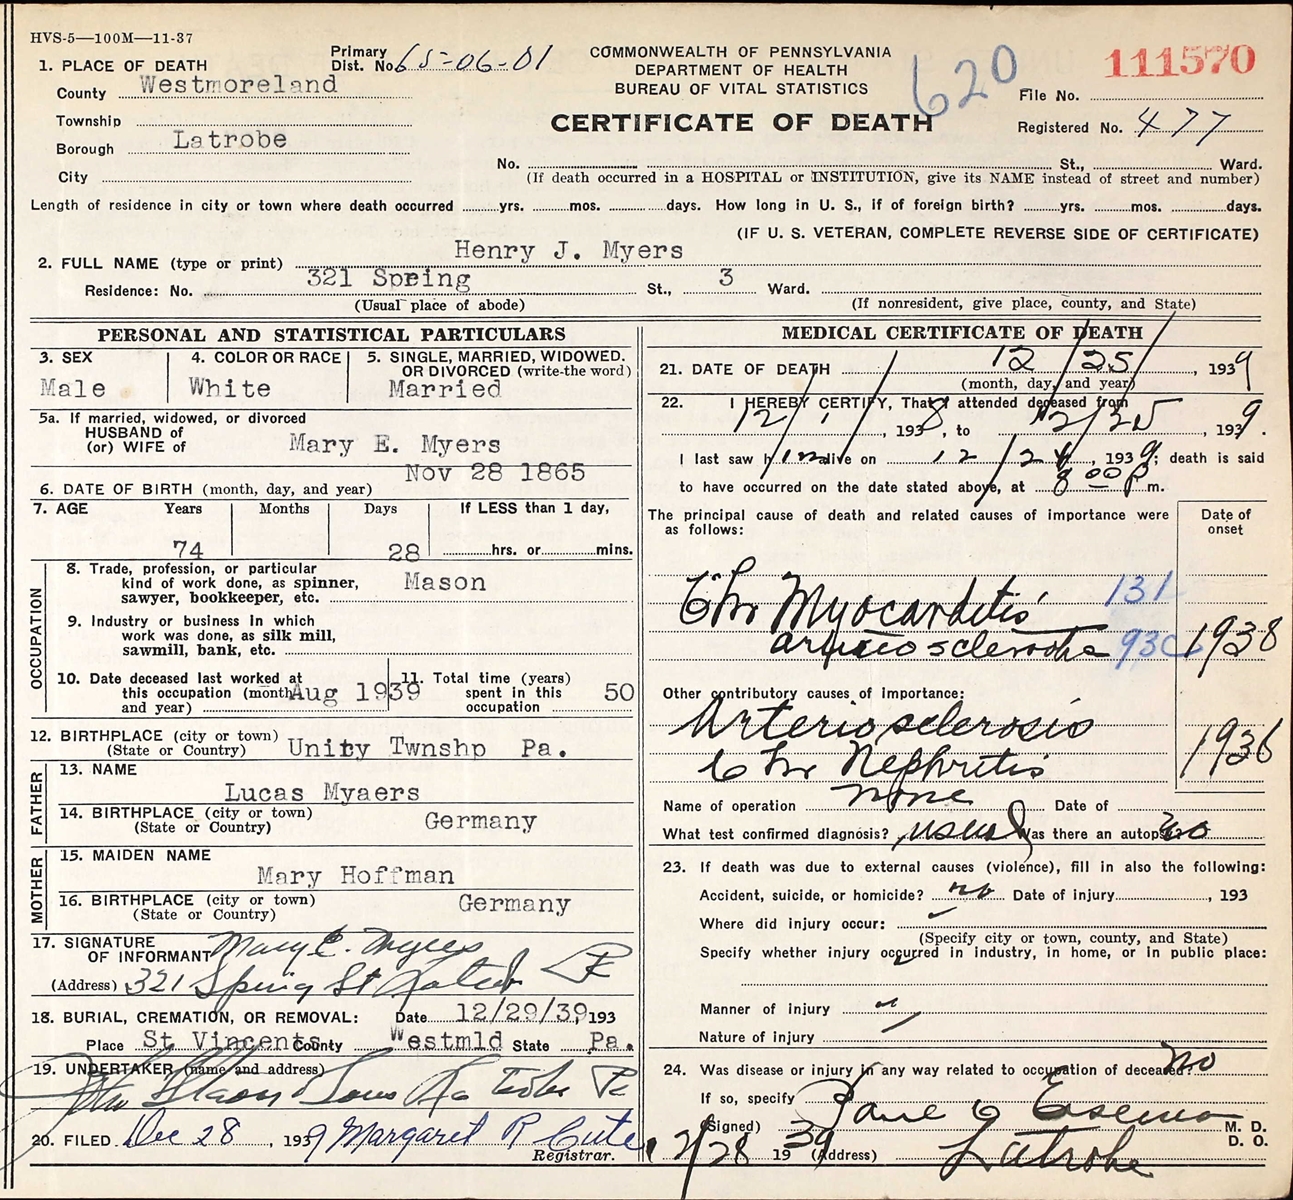 HVS-5—100M—11-37
1. PLACE OF DEATH
Primary Dist. No. 65-06-01
COMMONWEALTH OF PENNSYLVANIA
DEPARTMENT OF HEALTH
BUREAU OF VITAL STATISTICS
620
111570
County Westmoreland
File No.
Township
CERTIFICATE OF DEATH
Registered No. 477
Borough Latrobe
No. St., Ward.
City
(If death occurred in a HOSPITAL or INSTITUTION, give its NAME instead of street and number)
Length of residence in city or town where death occurred yrs. mos. days. How long in U. S., if of foreign birth? yrs. mos. days.
(IF U. S. VETERAN, COMPLETE REVERSE SIDE OF CERTIFICATE)
2. FULL NAME (type or print) Henry J. Myers
Residence: No. 321 Spring St., 3 Ward.
(Usual place of abode) (If nonresident, give place, county, and State)
PERSONAL AND STATISTICAL PARTICULARS
3. SEX
Male
4. COLOR OR RACE
White
5. SINGLE, MARRIED, WIDOWED. OR DIVORCED (write the word)
Married
5a. If married, widowed, or divorced
HUSBAND of
(or) WIFE of Mary E. Myers
6. DATE OF BIRTH (month, day, and year) Nov 28 1865
7. AGE Years Months Days If LESS than 1 day,
74 28 hrs. or mins.
OCCUPATION
8. Trade, profession, or particular
kind of work done, as spinner,
sawyer, bookkeeper, etc. Mason
9. Industry or business in which
work was done, as silk mill,
sawmill, bank, etc.
10. Date deceased last worked at
this occupation (month
and year) Aug 1939
11. Total time (years)
spent in this
occupation 50
12. BIRTHPLACE (city or town)
(State or Country) Unity Twnshp Pa.
FATHER
13. NAME
Lucas Myaers
14. BIRTHPLACE (city or town)
(State or Country) Germany
MOTHER
15. MAIDEN NAME
Mary Hoffman
16. BIRTHPLACE (city or town)
(State or Country) Germany
17. SIGNATURE
OF INFORMANT Mary E. Myers
(Address) 321 Spring St Latrobe
18. BURIAL, CREMATION, OR REMOVAL: Date 12/29/39, 193
Place St Vincents County Westmld State Pa.
19. UNDERTAKER (name and address)
Sons Latrobe Pa
20. FILED Dec 28, 1939 Margaret R Cute
Registrar.
MEDICAL CERTIFICATE OF DEATH
21. DATE OF DEATH 12/25, 1939
(month, day, and year)
22. I HEREBY CERTIFY, That I attended deceased from
12/1/, 1938, to 12/25, 1939.
I last saw him alive on 12/24, 1939; death is said
to have occurred on the date stated above, at 8 00 P m.
The principal cause of death and related causes of importance were
as follows:
Date of
onset
Chr Myocarditis 131
arteriosclerosis 93c 1938
Other contributory causes of importance:
Arteriosclerosis
Chr Nephritis 1936
Name of operation none Date of
What test confirmed diagnosis? usual Was there an autopsy? no
23. If death was due to external causes (violence), fill in also the following:
Accident, suicide, or homicide? no Date of injury , 193
Where did injury occur:
(Specify city or town, county, and State)
Specify whether injury occurred in industry, in home, or in public place:
Manner of injury
Nature of injury
24. Was disease or injury in any way related to occupation of deceased? no
If so, specify
(Signed) M. D.
D. O.
12/28 1939 (Address) Latrobe